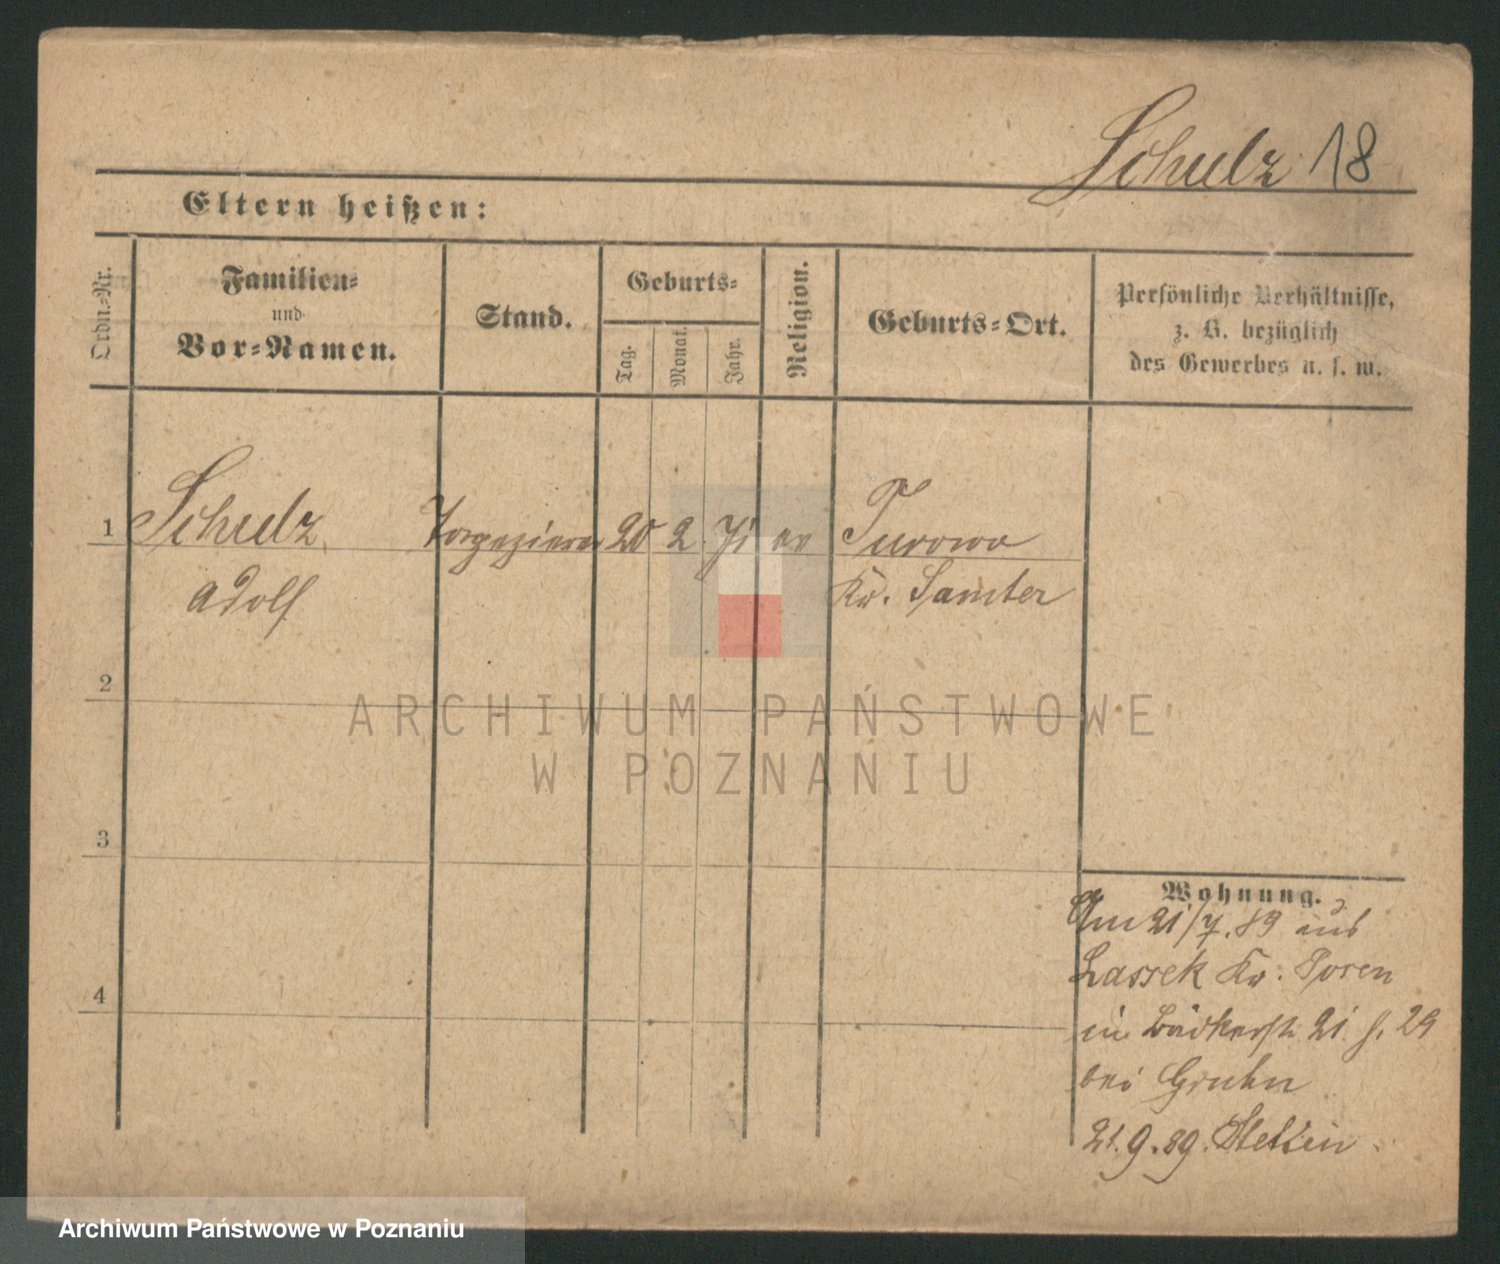 Schulz 18
Eltern heißen:
Ordn.-Nr.
Familien-
und
Vor-Namen.
Stand.
Geburts-
Tag.
Monat.
Jahr.
Religion.
Geburts-Ort.
Persönliche Verhältnisse,
z. B. bezüglich
des Gewerbes u. s. w.
1 Schulz Tapezierer 20 2 71 ev Turowo
Adolf Kr. Samter
2
3
4
Wohnung.
Am 21/7.89 aus
Lassek Kr. Posen
in Bäckerstr 21 29
bei Gruhn
21.9.89. Stettin
ARCHIWUM PAŃSTWOWE
W POZNANIU
Archiwum Państwowe w Poznaniu